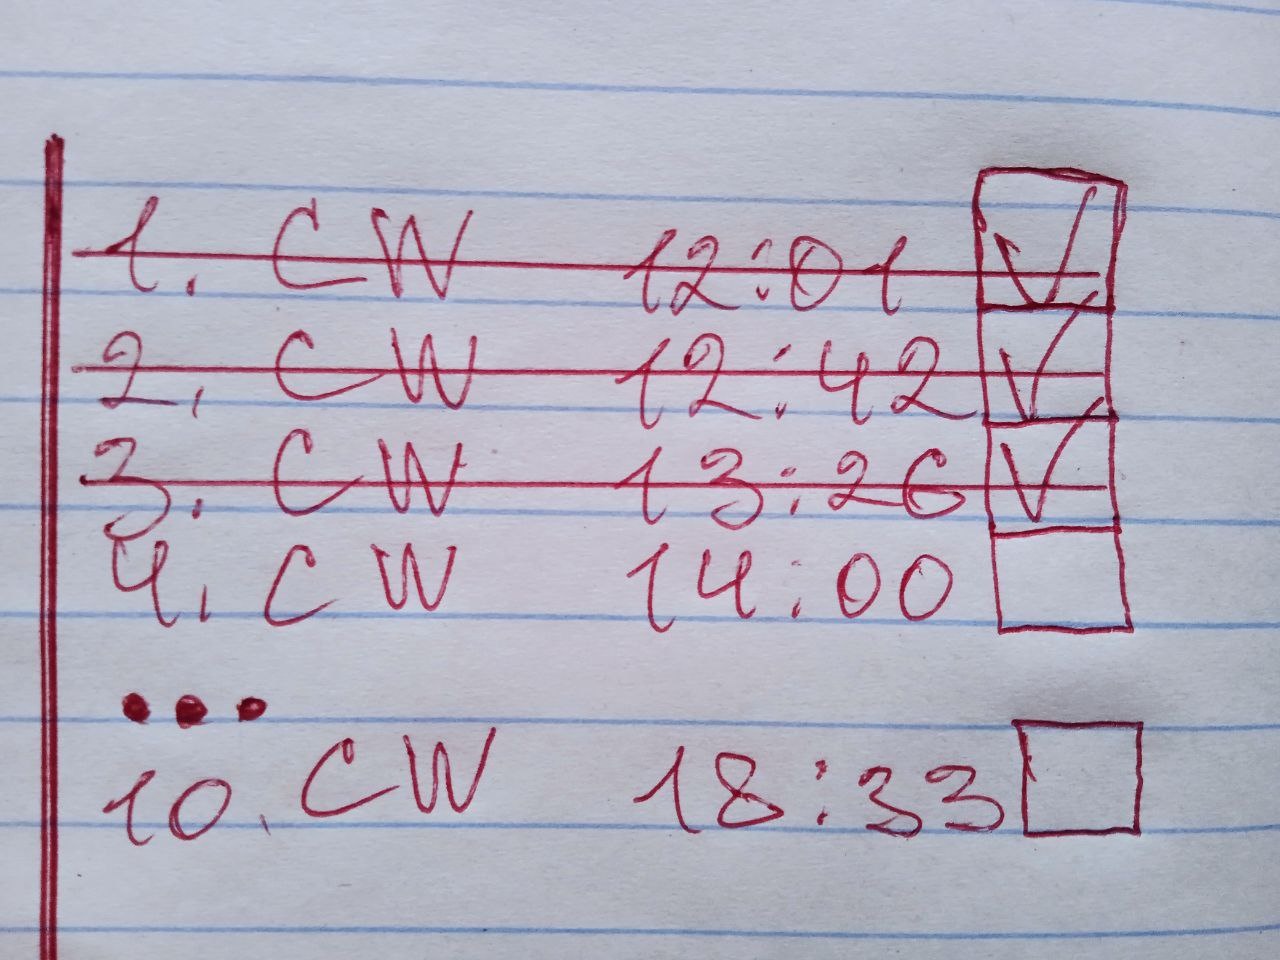 1. CW 12:01 ✓
2. CW 12:42 ✓
3. CW 13:26 ✓
4. CW 14:00
...
10. CW 18:33